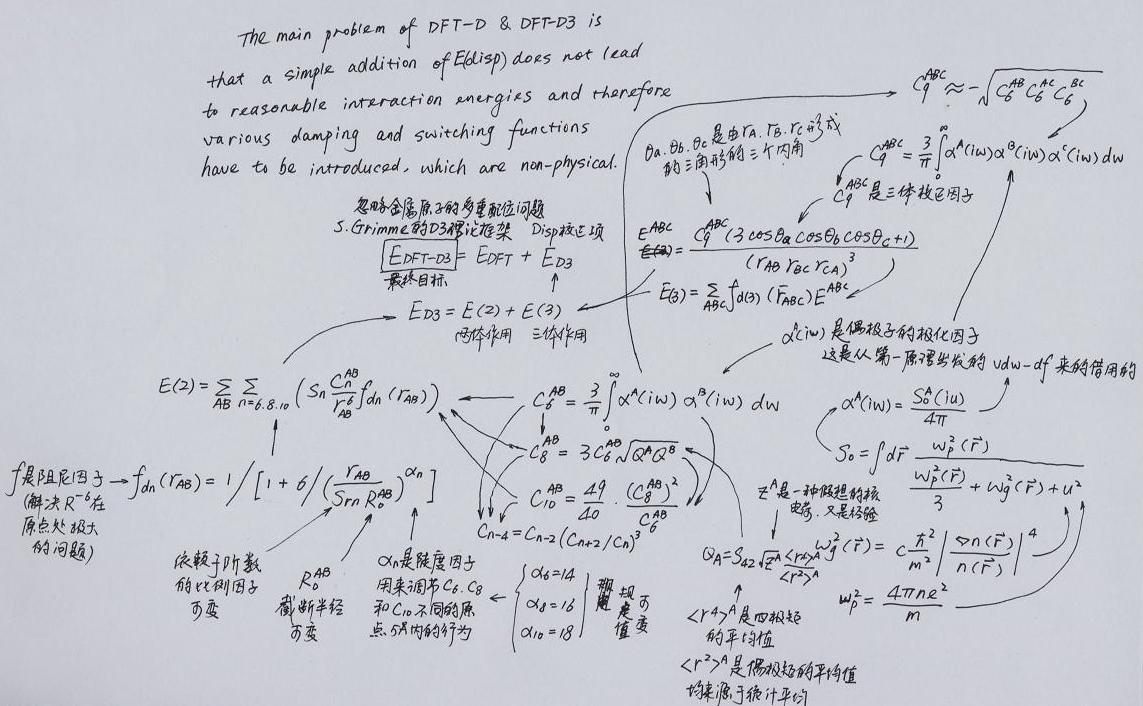 The main problem of DFT-D & DFT-D3 is
that a simple addition of E(disp) does not lead
to reasonable interaction energies and therefore
various damping and switching functions
have to be introduced, which are non-physical.
C₉^ABC ≈ -√(C₆^AB C₆^AC C₆^BC)
θa.θb.θc是由rA.rB.rc形成
的三角形的三个内角
C₉^ABC = 3/π ∫₀^∞ α^A(iw) α^B(iw) α^C(iw) dw
C₉^ABC 是三体校正因子
忽略金属原子的多重配位问题
S.Grimme的D3理论框架 Disp校正项
E_DFT-D3 = E_DFT + E_D3
最终目标
E^ABC = C₉^ABC (3cosθa cosθb cosθc+1) / (r_AB r_BC r_CA)³
E(3) = Σ_ABC f_d(3) (r̄_ABC) E^ABC
E_D3 = E(2) + E(3)
两体作用 三体作用
α^A(iw) 是偶极子的极化因子
这是从第一原理出发的 vdw-df 来的借用的
E(2) = Σ_AB Σ_n=6.8.10 (Sn C_n^AB / r_AB^6 f_dn (r_AB))
C₆^AB = 3/π ∫₀^∞ α^A(iw) α^B(iw) dw
α^A(iw) = S₀^A(iu) / 4π
C₈^AB = 3C₆^AB √(Q^A Q^B)
S₀ = ∫dr⃗ w_p²(r⃗) / (w_p²(r⃗)/3 + w_g²(r⃗) + u²)
f是阻尼因子 → f_dn(r_AB) = 1/[1+6/(r_AB / S_rn R₀^AB)^αn]
(解决R⁻⁶在
原点处极大
的问题)
C₁₀^AB = 49/40 · (C₈^AB)² / C₆^AB
C_n-4 = C_n-2 (C_n+2/C_n)³
Z^A是一种假想的核
电荷.又是经验
Q_A = S₄₂ √Z^A <r⁴>^A / <r²>^A
w_g²(r⃗) = c ℏ²/m² |∇n(r⃗) / n(r⃗)|⁴
w_p² = 4πne² / m
依赖于阶数
的比例因子
可变
R₀^AB
截断半径
可变
αn是陡度因子
用来调节C₆.C₈
和C₁₀不同的原
点5A内的行为
α₆=14
α₈=16
α₁₀=18
规定值
可变
<r⁴>^A 是四极矩
的平均值
<r²>^A 是偶极矩的平均值
均来源于统计平均